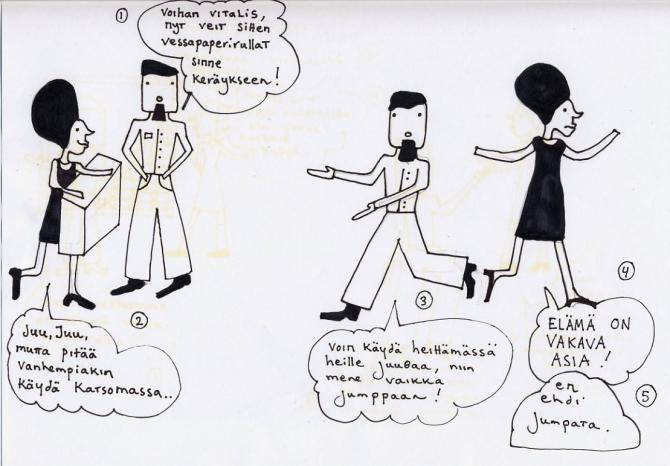 1
Voihan Vitalis,
nyt veit sitten
vessapaperirullat
sinne
keräykseen!
2
Juu, Juu,
mutta pitää
vanhempiakin
käydä katsomassa..
3
Voin käydä heittämässä
heille juuBaa, niin
mene vaikka
jumppaan!
4
ELÄMÄ ON
VAKAVA
ASIA!
5
en
ehdi
jumpata.